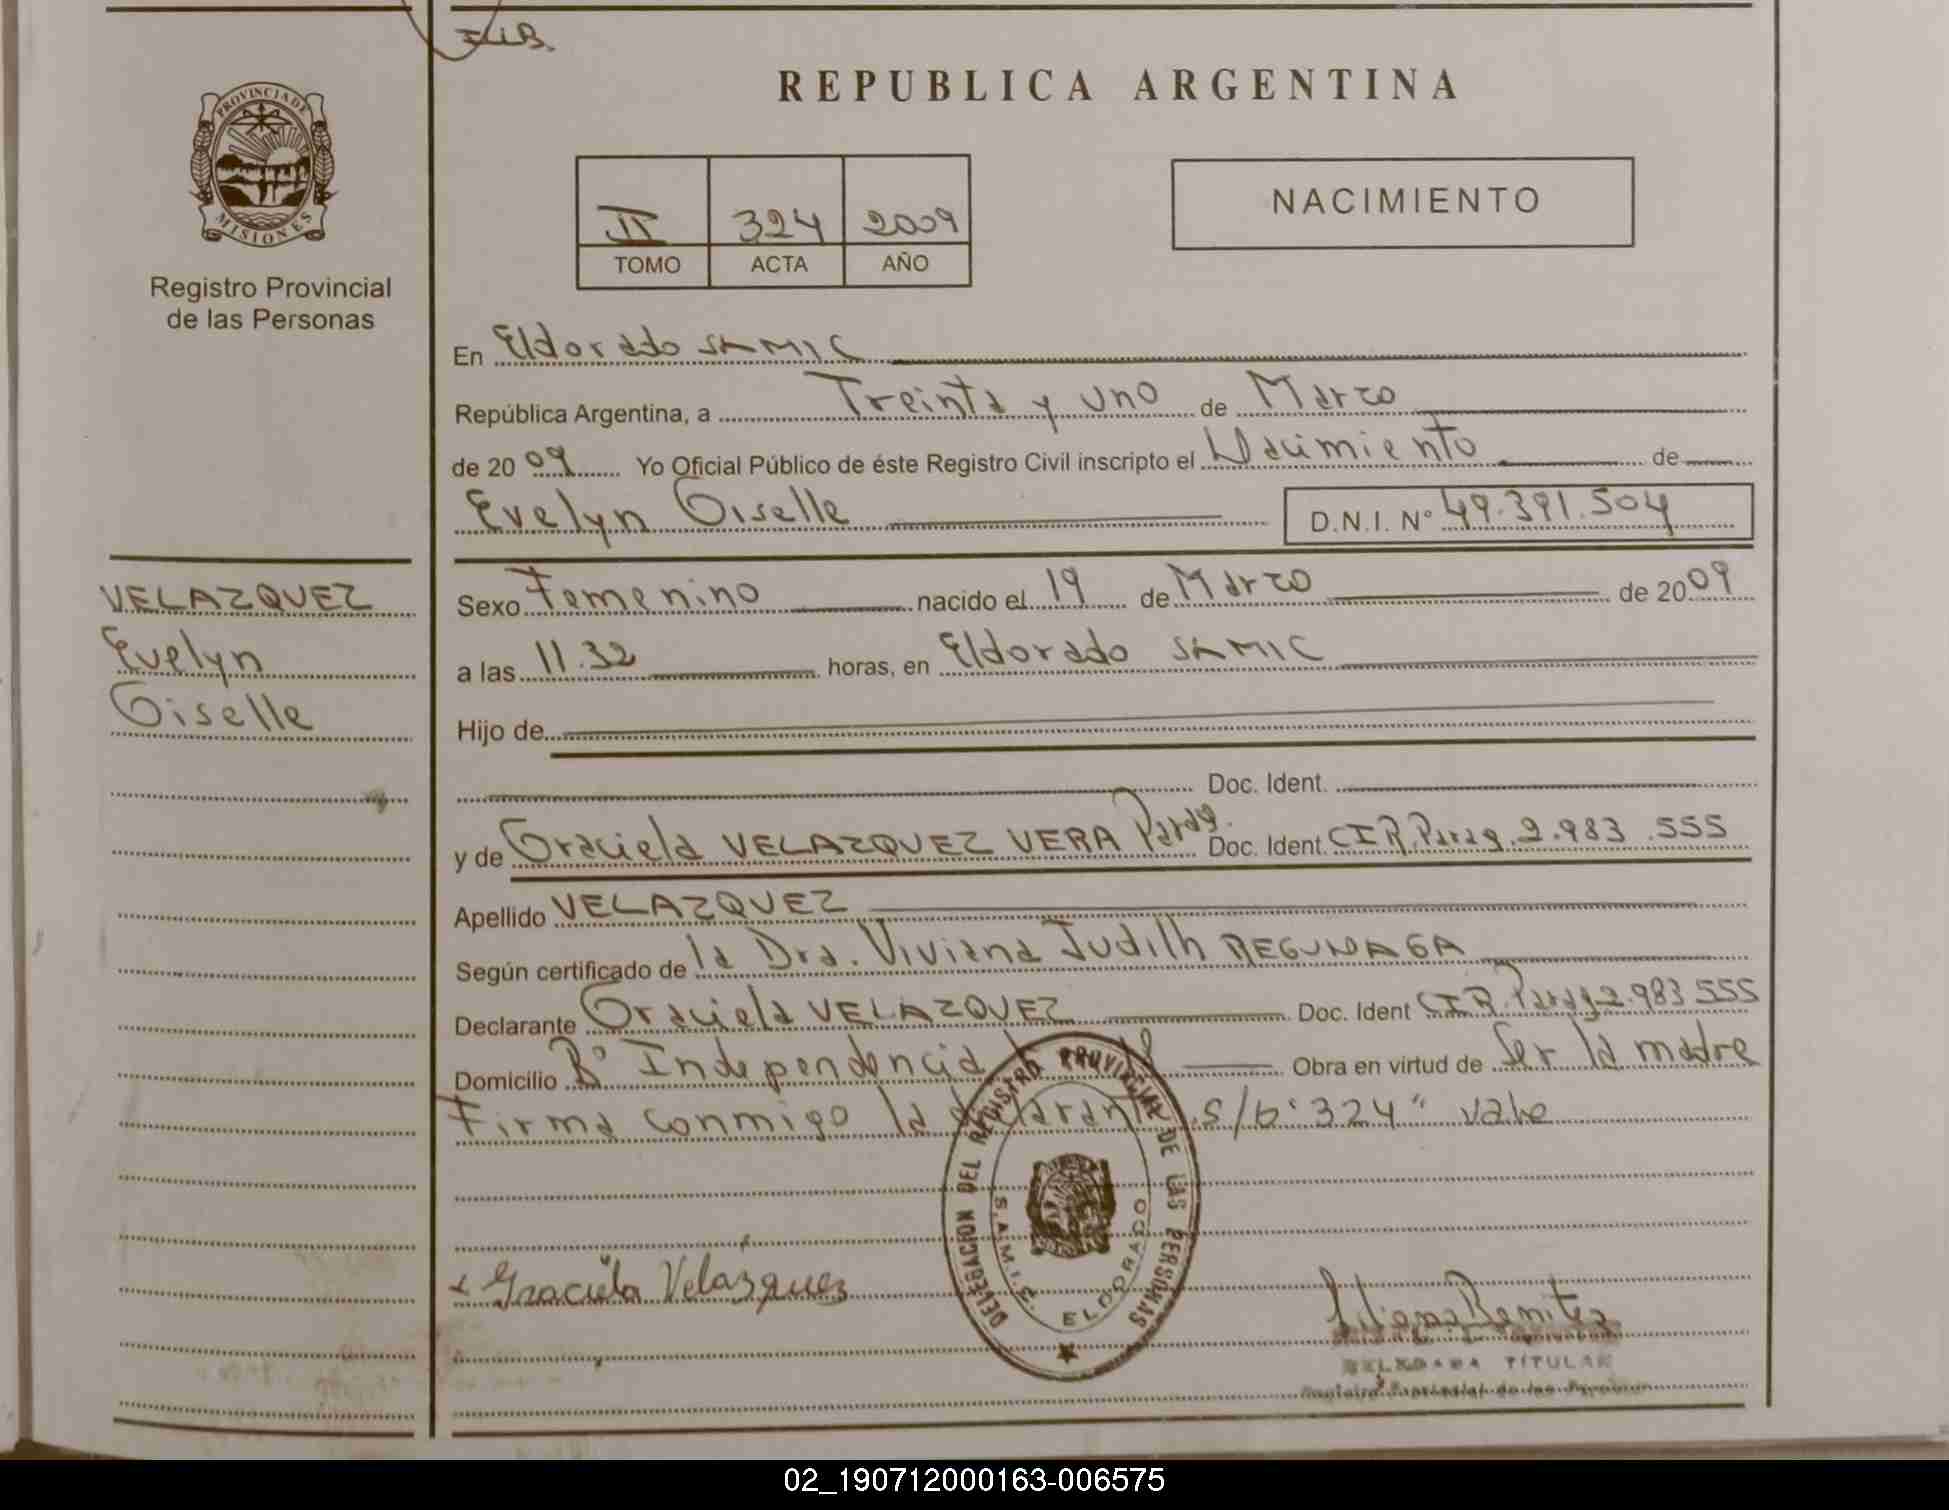 REPUBLICA ARGENTINA
PROVINCIA DE
MISIONES
Registro Provincial
de las Personas
II 324 2009
TOMO ACTA AÑO
NACIMIENTO
En Eldorado SAMIC
República Argentina, a Treinta y uno de Marzo
de 20 09 Yo Oficial Público de éste Registro Civil inscripto el Nacimiento de
Evelyn Giselle D.N.I. Nº 49.391.504
VELAZQUEZ
Evelyn
Giselle
Sexo Femenino nacido el 19 de Marzo de 20 09
a las 11.32 horas, en Eldorado SAMIC
Hijo de
Doc. Ident.
y de Graciela VELAZQUEZ VERA Parag. Doc. Ident. CIR. Parag. 2.983.555
Apellido VELAZQUEZ
Según certificado de la Dra. Viviana Judith REGUNAGA
Declarante Graciela VELAZQUEZ Doc. Ident CIR. Parag 2.983.555
Domicilio Bº Independencia 18 Obra en virtud de Ser la madre
Firma conmigo la declarante. s/b "324" vale
DELEGACION DEL REGISTRO PROVINCIAL DE LAS PERSONAS
S.A.M.I.C. ELDORADO
Graciela Velazquez
Liliana Benitez
DELEGADA TITULAR
Registro Provincial de las Personas
02_190712000163-006575